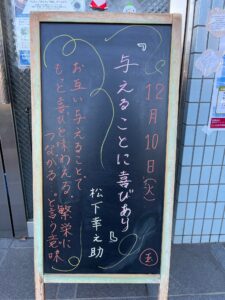 12月10日(火)
『与えることに喜びあり』
松下幸之助
お互い与えることで
もっと喜びを味わえる、繁栄に
つながる。と言う意味